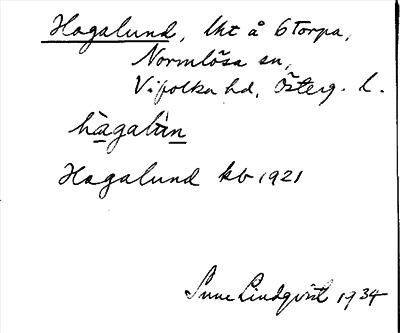 Hagalund, lht å 6 Torpa,
Normlösa sn,
Vifolka hd, Österg. l.
hàgalùn
Hagalund kb 1921
Sune Lindqvist 1934